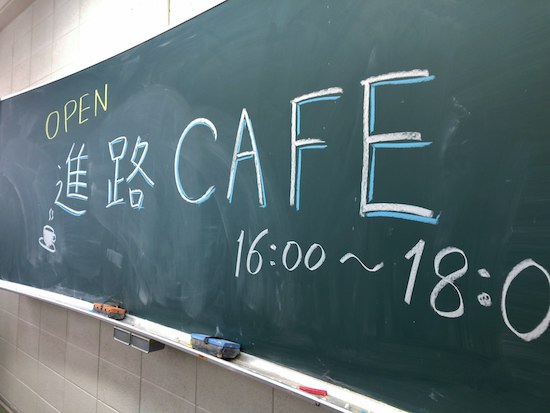 OPEN
進路 CAFE
16:00～18:0